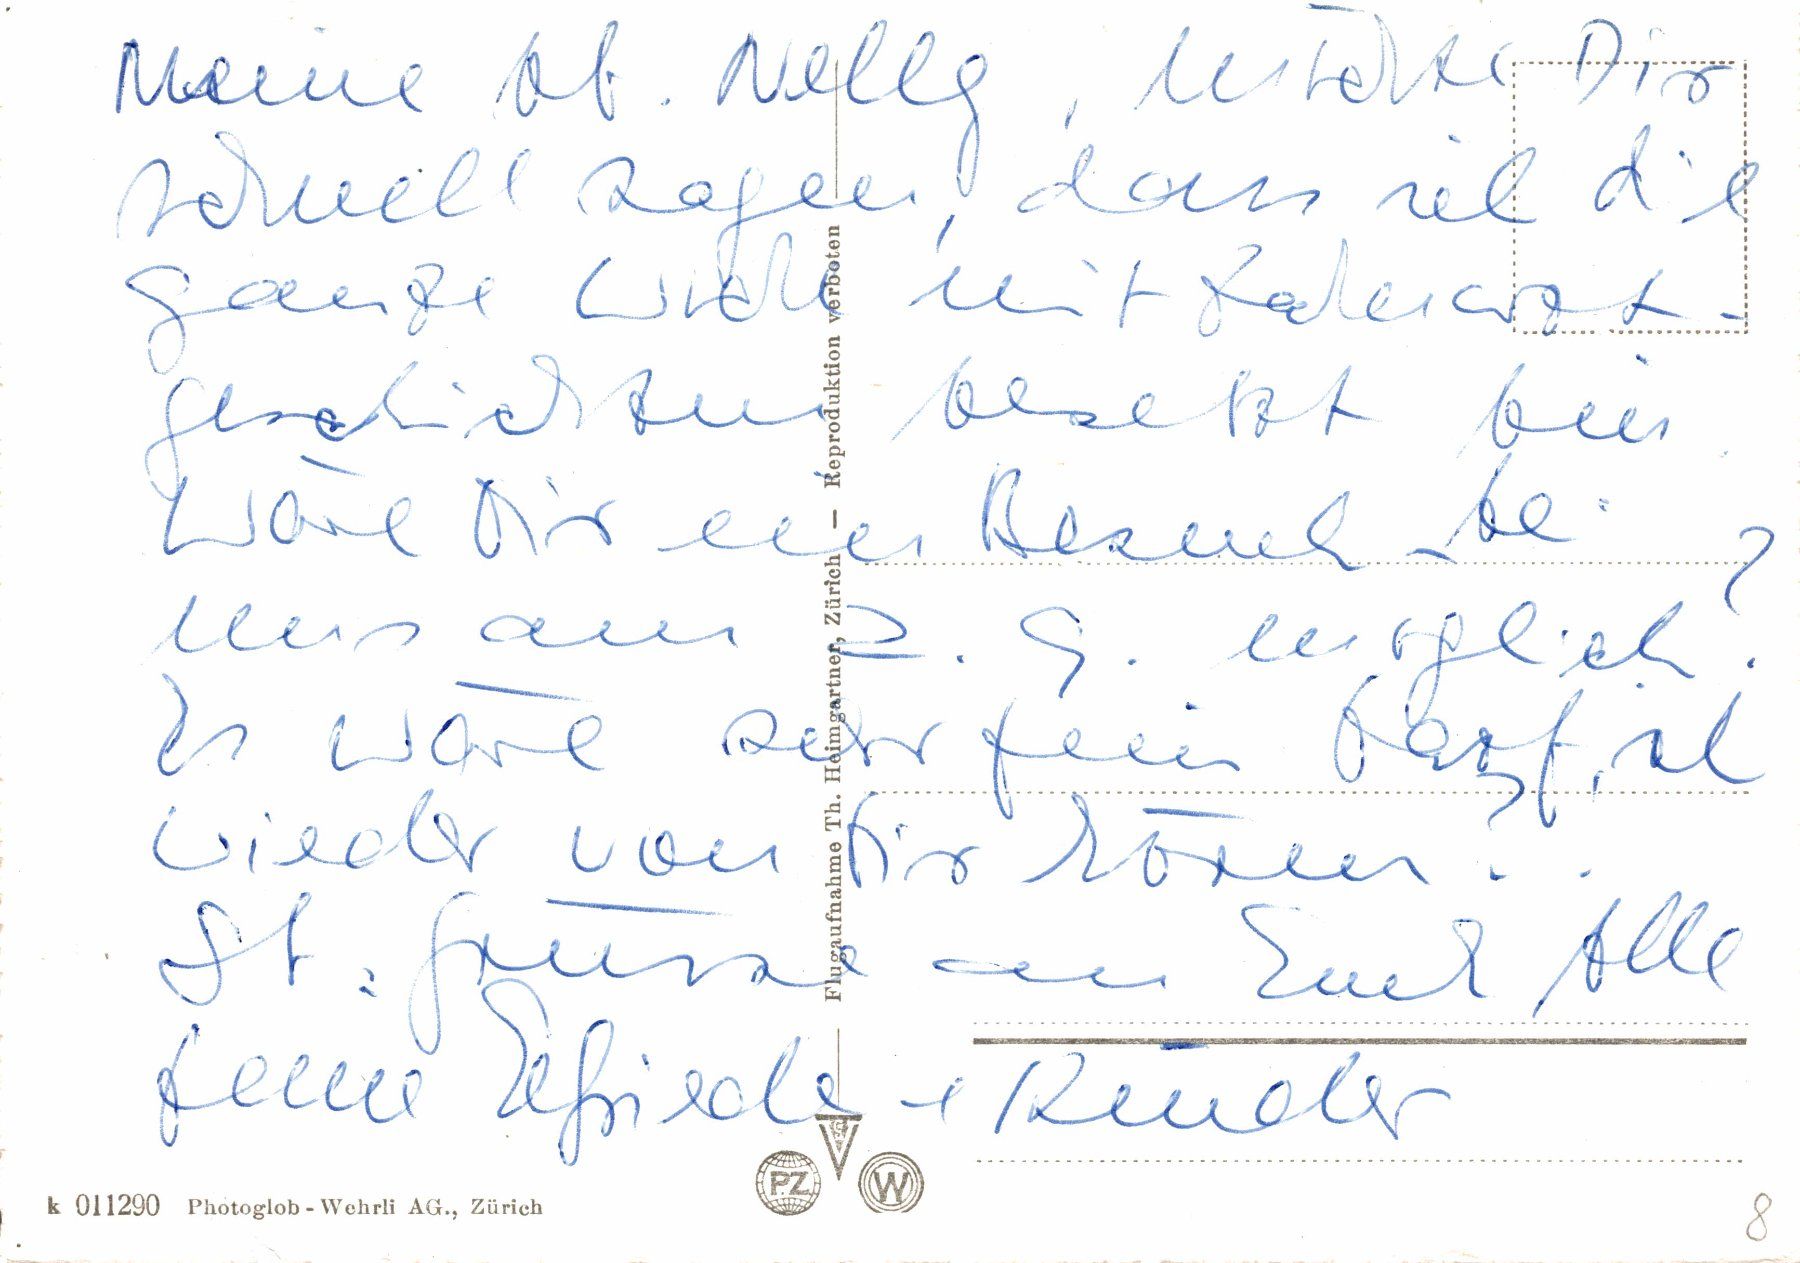 Meine lb. Nelly, möchte Dir
schnell sagen, dass ich die
ganze Woche mit Zahnarzt-
geschichten besetzt bin.
Wäre Dir ein Besuch bei
uns am 2. 9. möglich?
Es wäre sehr fein. Darf ich
wieder von Dir hören?
Grüsse an Euch Alle
Elfriede + Kinder
Flugaufnahme Th. Heimgartner, Zürich — Reproduktion verboten
PZ
W
k 011290 Photoglob-Wehrli AG., Zürich
8